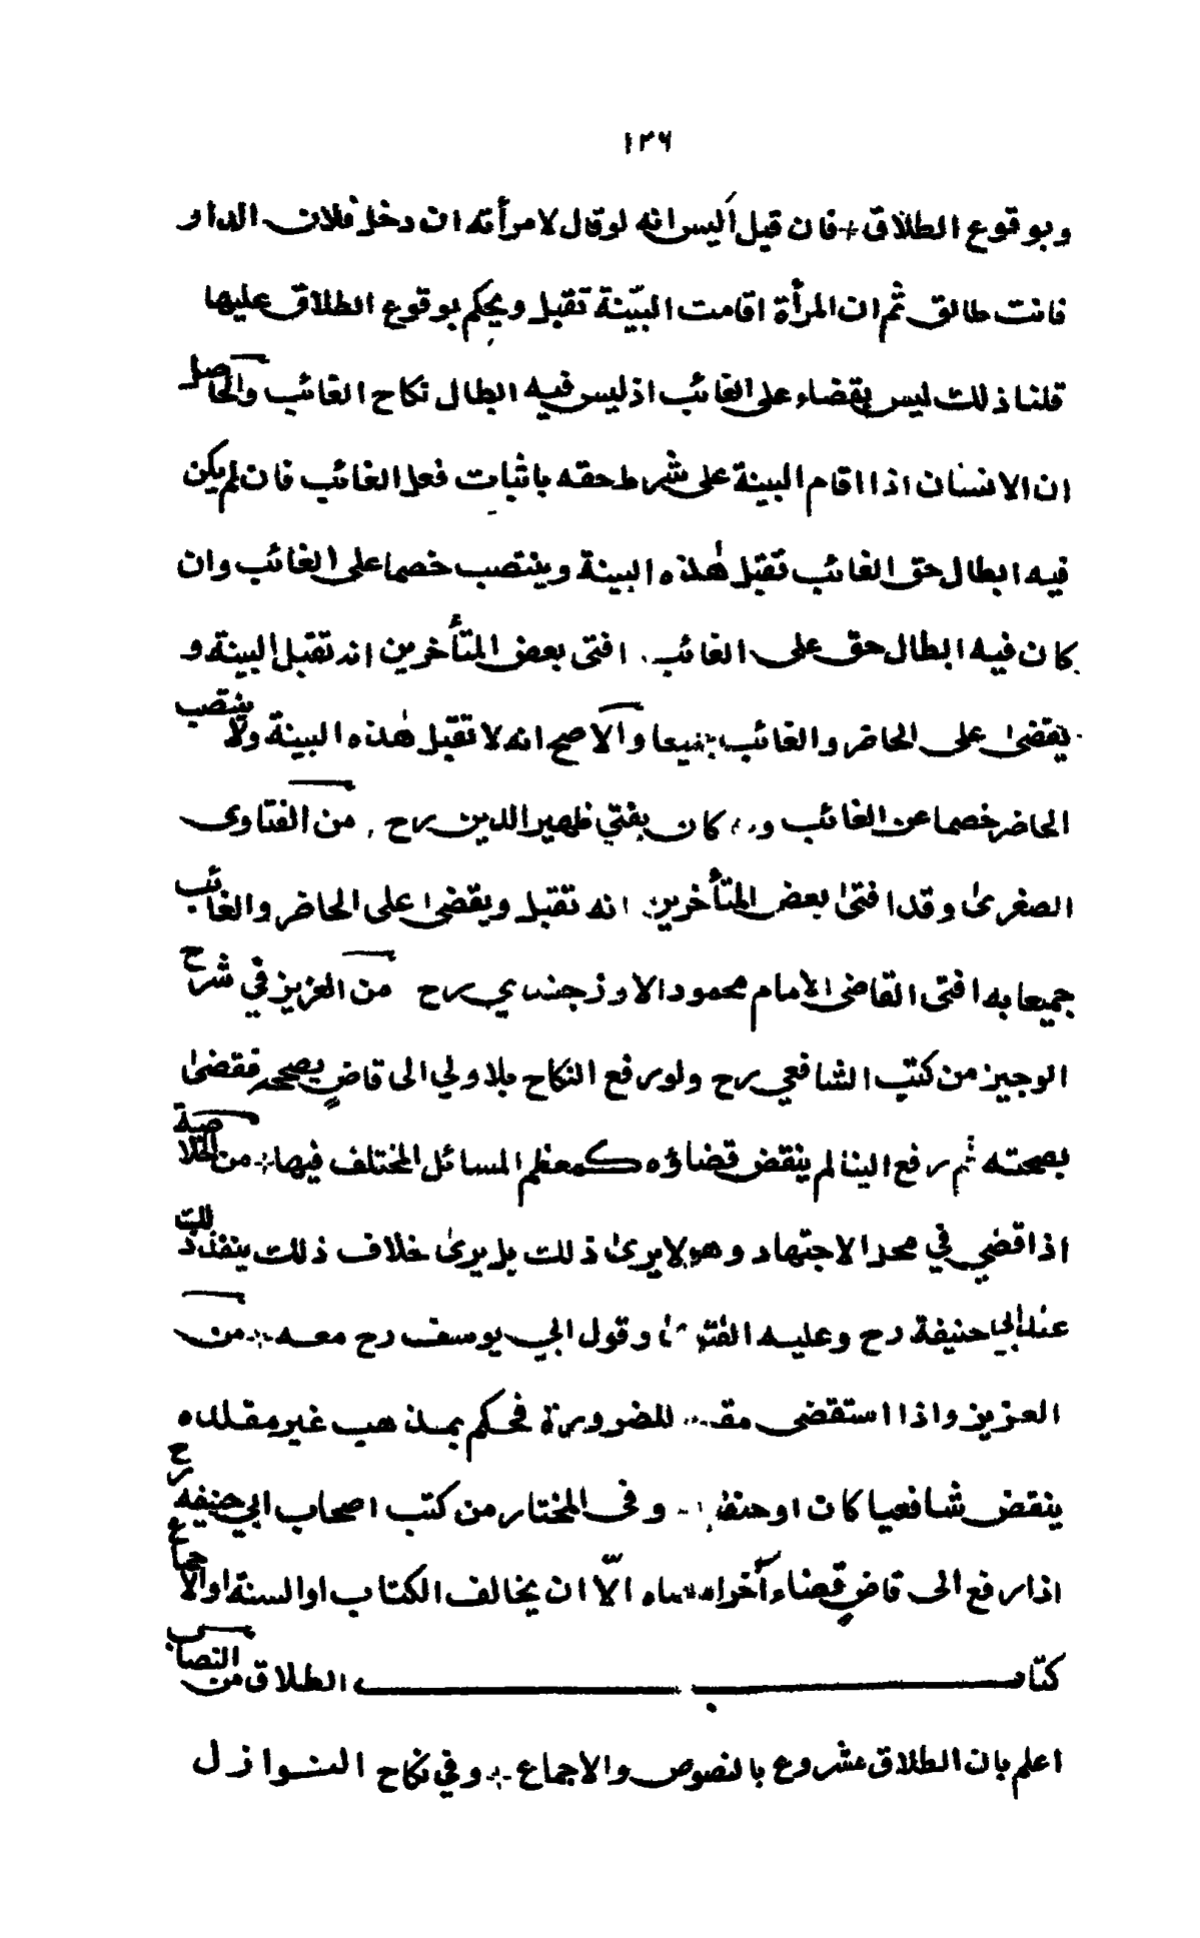 ١٢٦
وبوقوع الطلاق + فان قيل أليس انه لوقال لامرأته ان دخل فلان الدار
فانت طالق ثم ان المرأة اقامت البيّنة تقبل ويحكم بوقوع الطلاق عليها
قلنا ذلك ليس بقضاء على الغائب اذ ليس فيه ابطال نكاح الغائب والحاصل
ان الانسان اذا اقام البينة على شرط حقه باثبات فعل الغائب فان لم يكن
فيه ابطال حق الغائب تقبل هٰذه البينة وينتصب خصما على الغائب وان
كان فيه ابطال حق على الغائب افتى بعض المتأخرين انه تقبل البينة و
يقضىٰ على الحاضر والغائب جميعا والاصح انه لا تقبل هٰذه البينة ولا ينتصب
الحاضر خصما عن الغائب كان يفتي ظهير الدين رح من الفتاوى
الصغرىٰ وقد افتىٰ بعض المتأخرين انه تقبل ويقضىٰ على الحاضر والغائب
جميعا به افتى القاضى الامام محمود الاوزجندي رح من العزيز في شرح
الوجيز من كتب الشافعي رح ولو رفع النكاح بلا ولي الى قاضٍ يصححه فقضىٰ
بصحته ثم رفع الينا لم ينقض قضاؤه كمعظم المسائل المختلف فيها + من الخلاصة
اذا قضي في محل الاجتهاد وهو لا يرىٰ ذلك بل يرىٰ خلاف ذلك ينفذ ذلك
عند ابي حنيفة رح وعليه وقول ابي يوسف رح معه + من
العزيز واذا استقضى للضرورة فحكم بمذهب غير مقلده
ينقض شافعيا كان او وفى المختار من كتب اصحاب ابي حنيفه رح
اذا رفع الى قاضٍ قضاء آخر الّا ان يخالف الكتاب او السنة او الاجماع
كتاب الطلاق من النصاب
اعلم بان الطلاق مشروع بالنصوص والاجماع + وفي نكاح النوازل